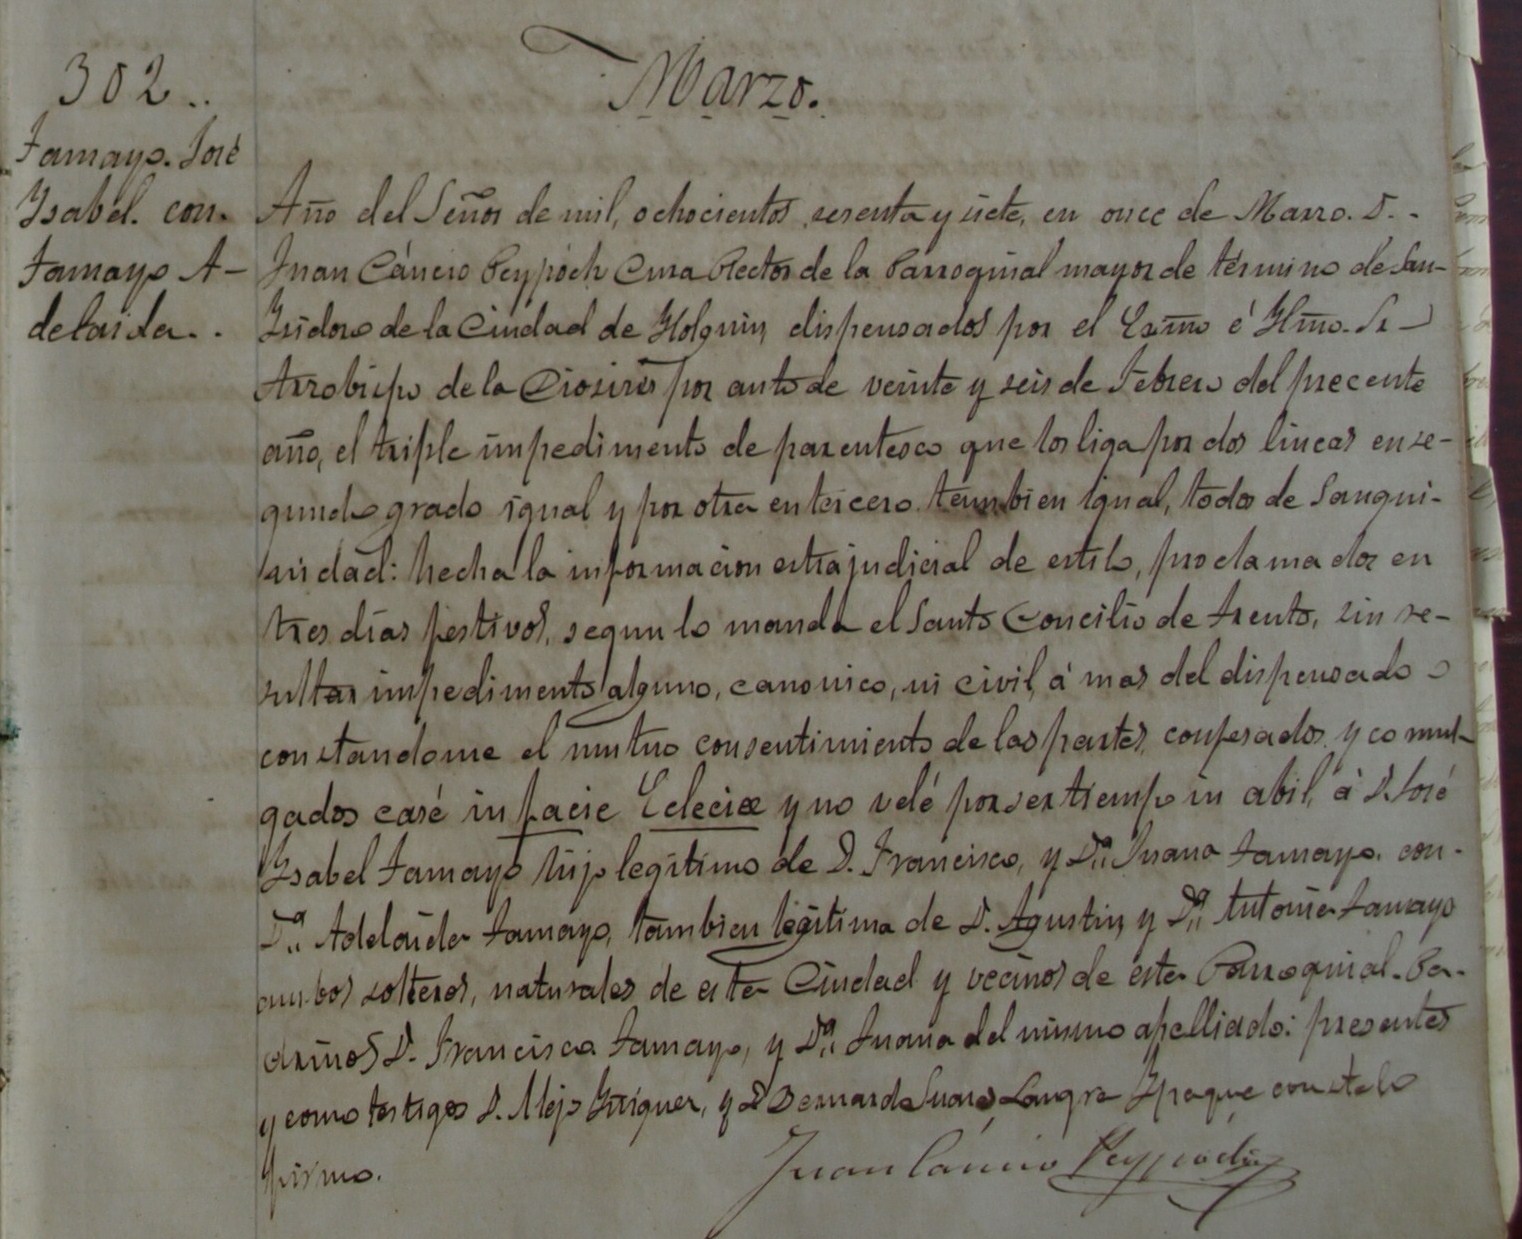 302..
Marzo.
Tamayo. José
Ysabel. con.
Tamayo A-
delaida..
Año del Señor de mil, ochocientos, sesenta y siete, en once de Marzo. D..
Juan Cáncio Peypóch Cura Rector de la Parroquial mayor de término de San-
Ysidoro de la Ciudad de Holguin, dispensados por el Exmo é Yllmo. Sr
Arzobispo de la Diócesis por auto de veinte y seis de Febrero del precente
año, el triple impedimento de parentesco que los liga por dos lineas en se-
gundo grado igual y por otra en tercero tambien igual, todos de Sangui-
nidad: hecha la informacion extrajudicial de estilo, proclamados en
tres días festivos, segun lo manda el Santo Concilio de trento, sin re-
sultar impedimento alguno, canonico, ni civil, á mas del dispensado
constandome el mutuo consentimiento de las partes, confesados y comul-
gados casé in facie Ecleciæ y no velé por ser tiempo in abil, á D. José
Ysabel Tamayo hijo legítimo de D. Francisco, y Dª Juana Tamayo. con-
Dª Adelaida Tamayo, tambien legítima de D. Agustin, y Dª Antonia Tamayo
ambos solteros, naturales de esta Ciudad y vecinos de esta Parroquial. Pa-
drinos D. Francisco Tamayo, y Dª Juana del mismo apelliado: presentes
y como testigos D. Alejo Yñiguez, y D Bernardo Suares Langre Y paque conste lo
firmo.
Juan Cáncio Peypóch